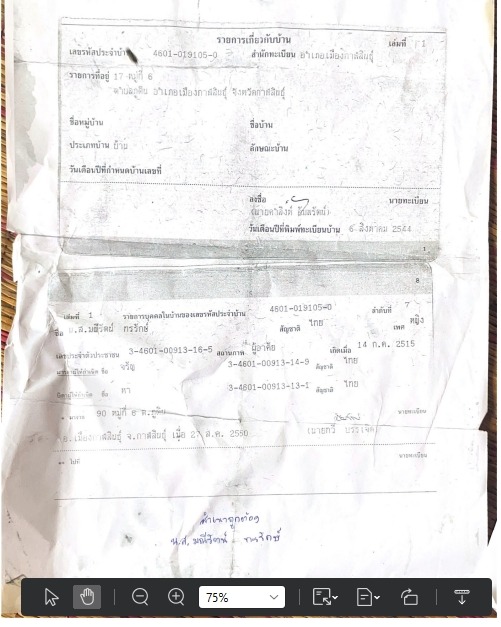 รายการเกี่ยวกับบ้าน เล่มที่ 1
เลขรหัสประจำบ้าน 4601-019105-0 สำนักทะเบียน อำเภอเมืองกาฬสินธุ์
รายการที่อยู่ 17 หมู่ที่ 6
อำเภอเมืองกาฬสินธุ์ จังหวัดกาฬสินธุ์
ชื่อหมู่บ้าน ชื่อบ้าน
ประเภทบ้าน บ้าน ลักษณะบ้าน
วันเดือนปีที่กำหนดบ้านเลขที่
ลงชื่อ นายทะเบียน
วันเดือนปีที่พิมพ์ทะเบียนบ้าน 6 สิงหาคม 2544
1
8
เล่มที่ 1 รายการบุคคลในบ้านของเลขรหัสประจำบ้าน 4601-019105-0 ลำดับที่ 7
ชื่อ น.ส.มณีรัตน์ ภรรักษ์ สัญชาติ ไทย เพศ หญิง
เลขประจำตัวประชาชน 3-4601-00913-16-5 สถานภาพ ผู้อาศัย เกิดเมื่อ 14 ก.ค. 2515
มารดาผู้ให้กำเนิด ชื่อ จรัญ 3-4601-00913-14-9 สัญชาติ ไทย
บิดาผู้ให้กำเนิด ชื่อ 3-4601-00913-13-1 สัญชาติ ไทย
มาจาก 90 หมู่ที่ 6 นายทะเบียน
อ.เมืองกาฬสินธุ์ จ.กาฬสินธุ์ เมื่อ 27 ส.ค. 2550
ไปที่ นายทะเบียน
สำเนาถูกต้อง
น.ส. มณีรัตน์ ภรรักษ์
75%